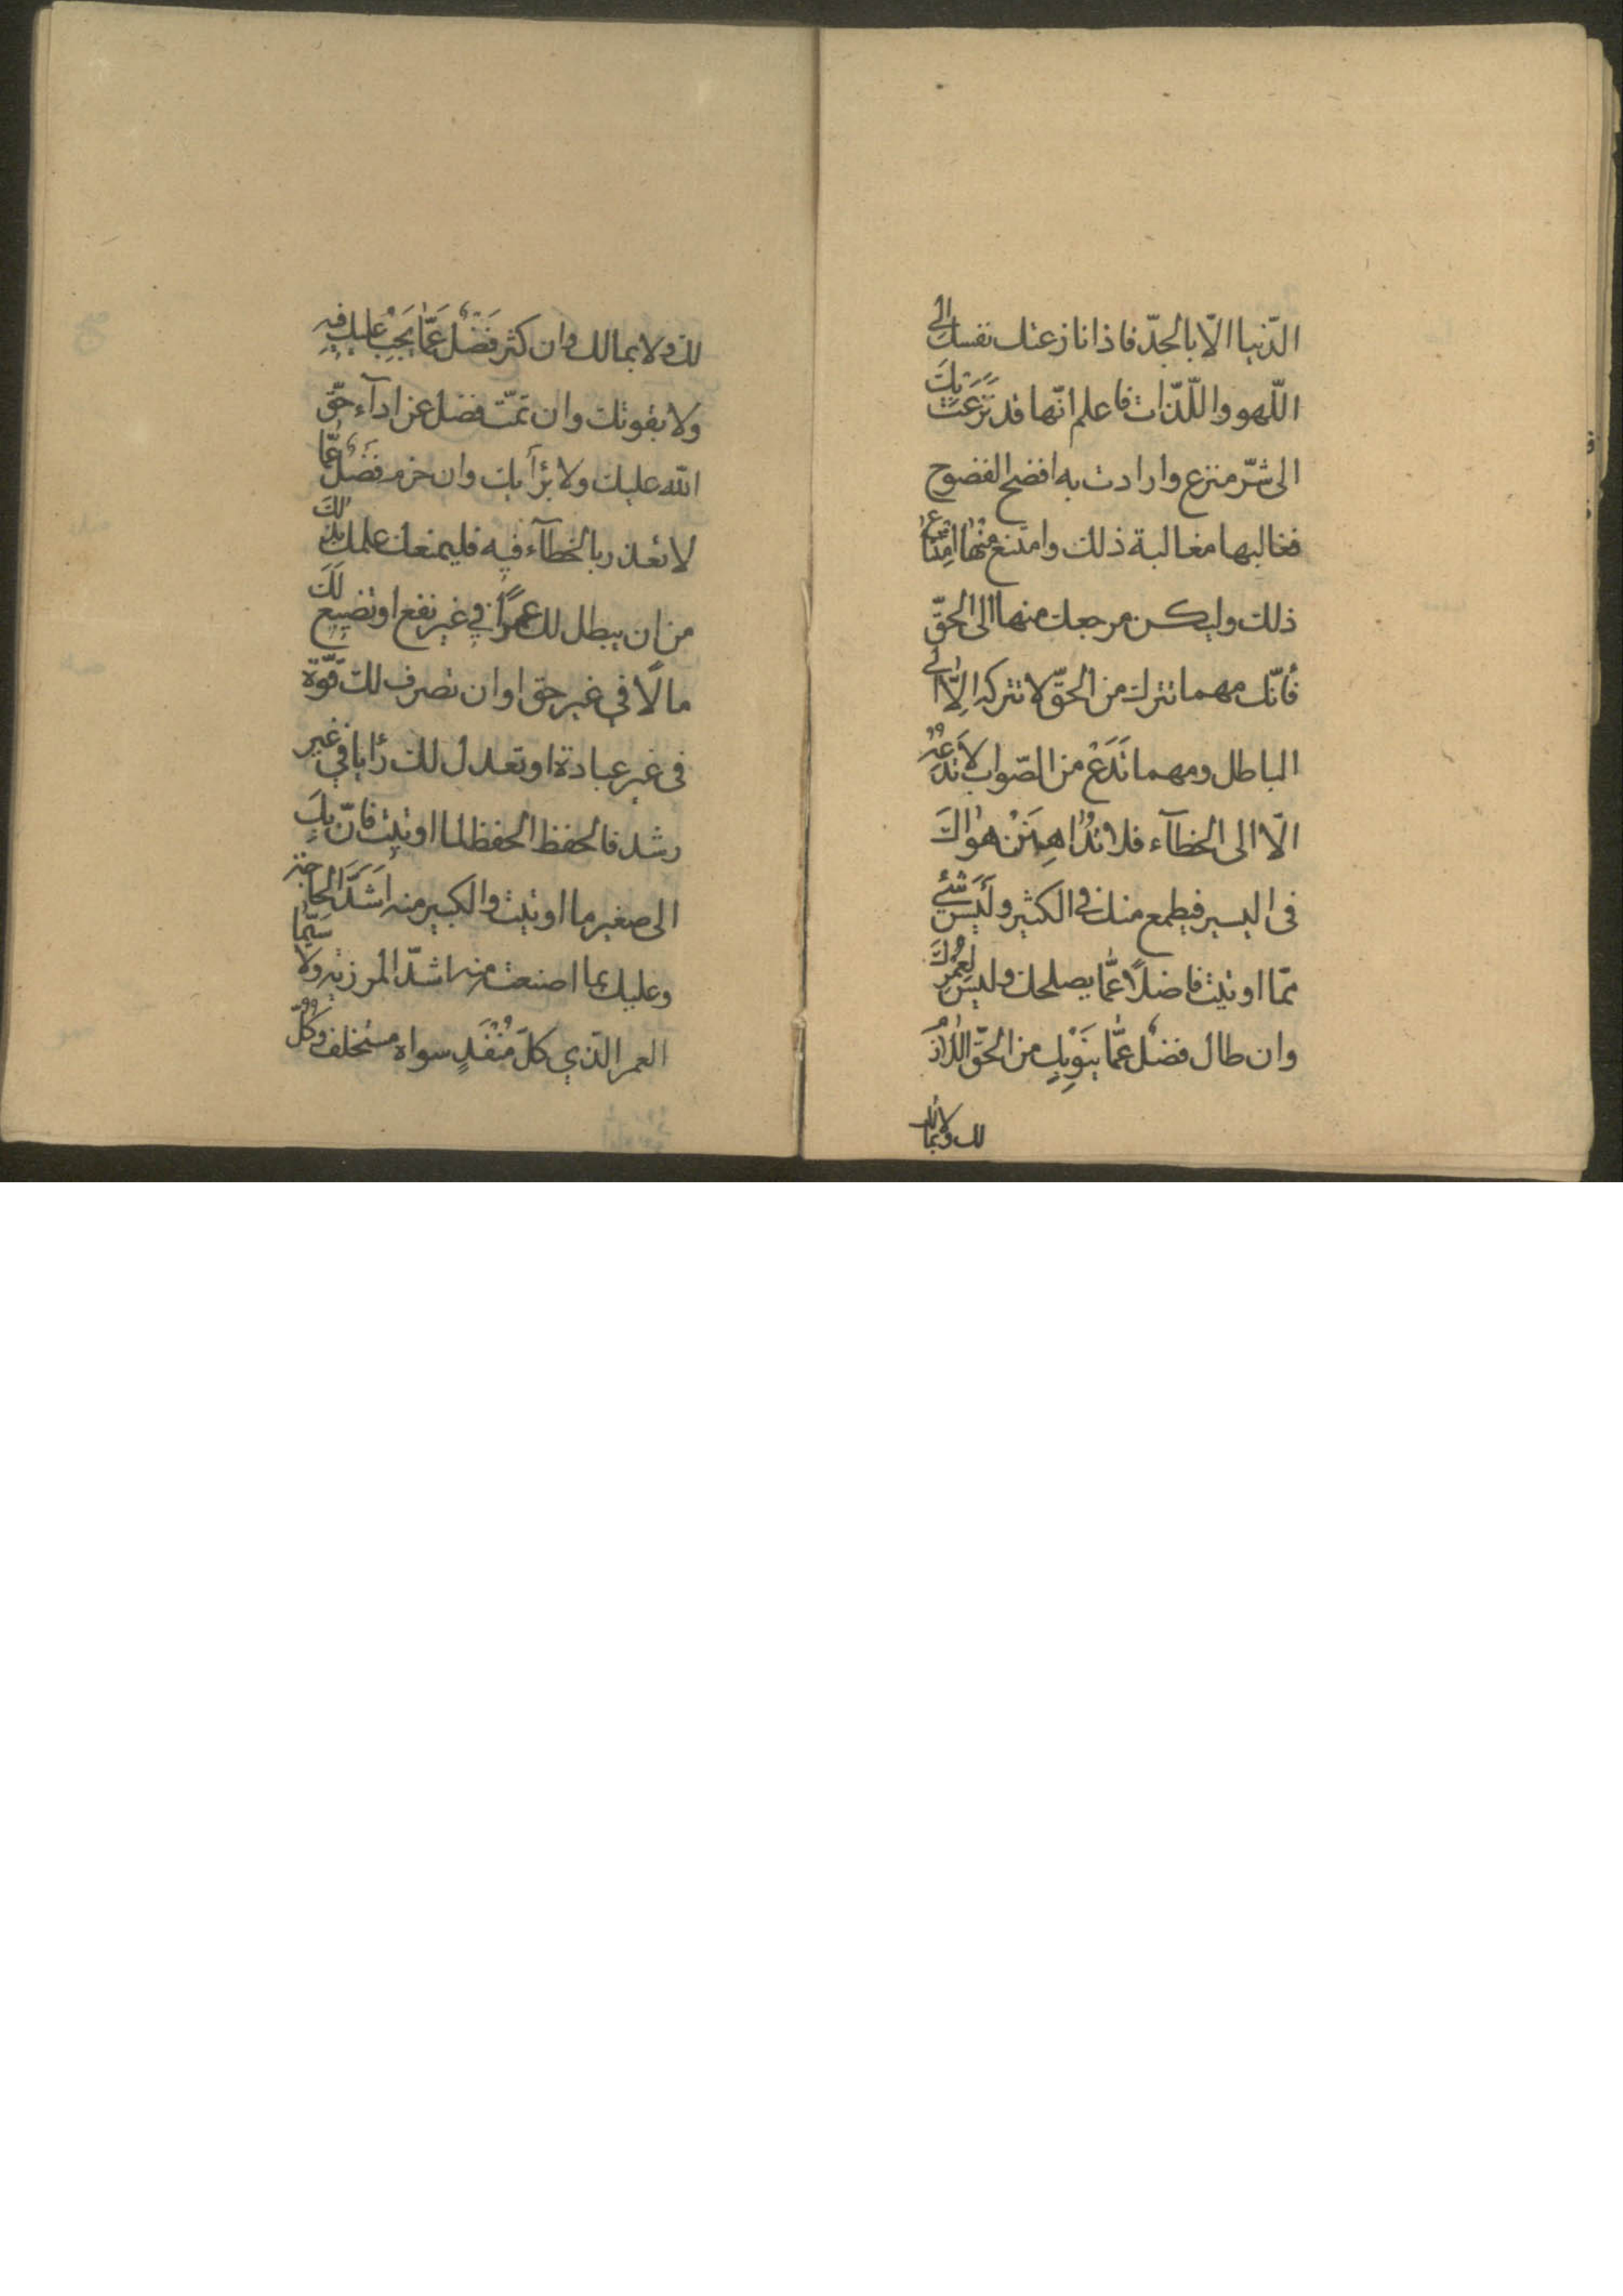 الدّنيا الّا بالجدّ فاذا نازعتك نفسك الى
اللّهو واللّذّات فاعلم انّها قد نَزَعَتْ بِكَ
الى شرّ منزع وارادت بك افضح الفضوح
فغالبها مغالبة ذلك وامتنع مِنْها امتناع
ذلك وليكن مرجعك منها الى الحقّ
فأنّك مهما تترك من الحقّ لا تتركه اِلّا الى
الباطل ومهما تَدَعْ من الصّواب لا تَدَعْهُ
الّا الى الخطآء فلا تُداهِنَنْ هواكَ
فى اليسير فيطمع منك فى الكثير ولَيْسَ شَئٌ
ممّا اوتيت فاضلًا عَمّا يصلحك وليس لِعُمُرِكَ
وان طال فضل عَمّا يَنُوبُكَ من الحقّ اللّازم
لك ولا بمالك
لك ولا بمالك وان كثر فَضْل عَمّا يَجِبُ عليك فيه
ولا بقوتك وان تمّت فضل عن ادآء حقّ
الله عليك ولا برأيك وان حزم فَضْل عَمّا
لا تعذر بالخطآء فيه فليمنعك علمك بذلكَ
من ان يبطل لك عمرًا في غير نفع او تضييع لَكَ
مالًا في غير حق او ان تصرف لك قوّة
فى غير عبادة او تعدل لك رأيا في غير
رشد فالحفظ الحفظ لما اوتيت فانّ بِكَ
الى صغير ما اوتيت والكبير منه اَشَدَّ الحاجة
وعليك بما اضعت منه اشدّ المرزية ولا سَيّما
العمر الّذي كلّ مُنْفَدٍ سواه مستخلف وكُلُّ